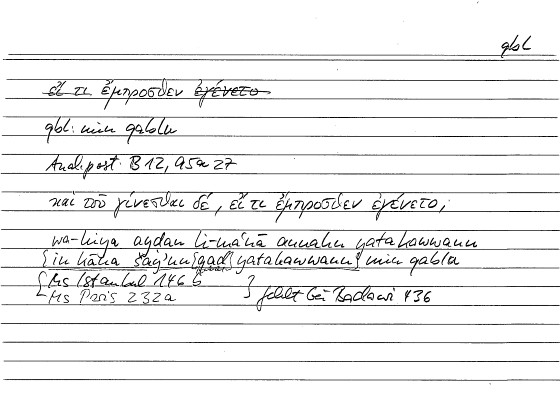 qbl
εἴ τι ἔμπροσθεν ἐγένετο
qbl: min qablu
Anal. post. B 12, 95a 27
καὶ τοῦ γίνεσθαι δέ, εἴ τι ἔμπροσθεν ἐγένετο,
wa-hiya ayḍan li-mā annahu yatakawwanu
{in kāna šayʾun qad yatakawwanu} min qablu
{Ms Istanbul 146 b
Ms Paris 232a } fehlt bei Badawi 436